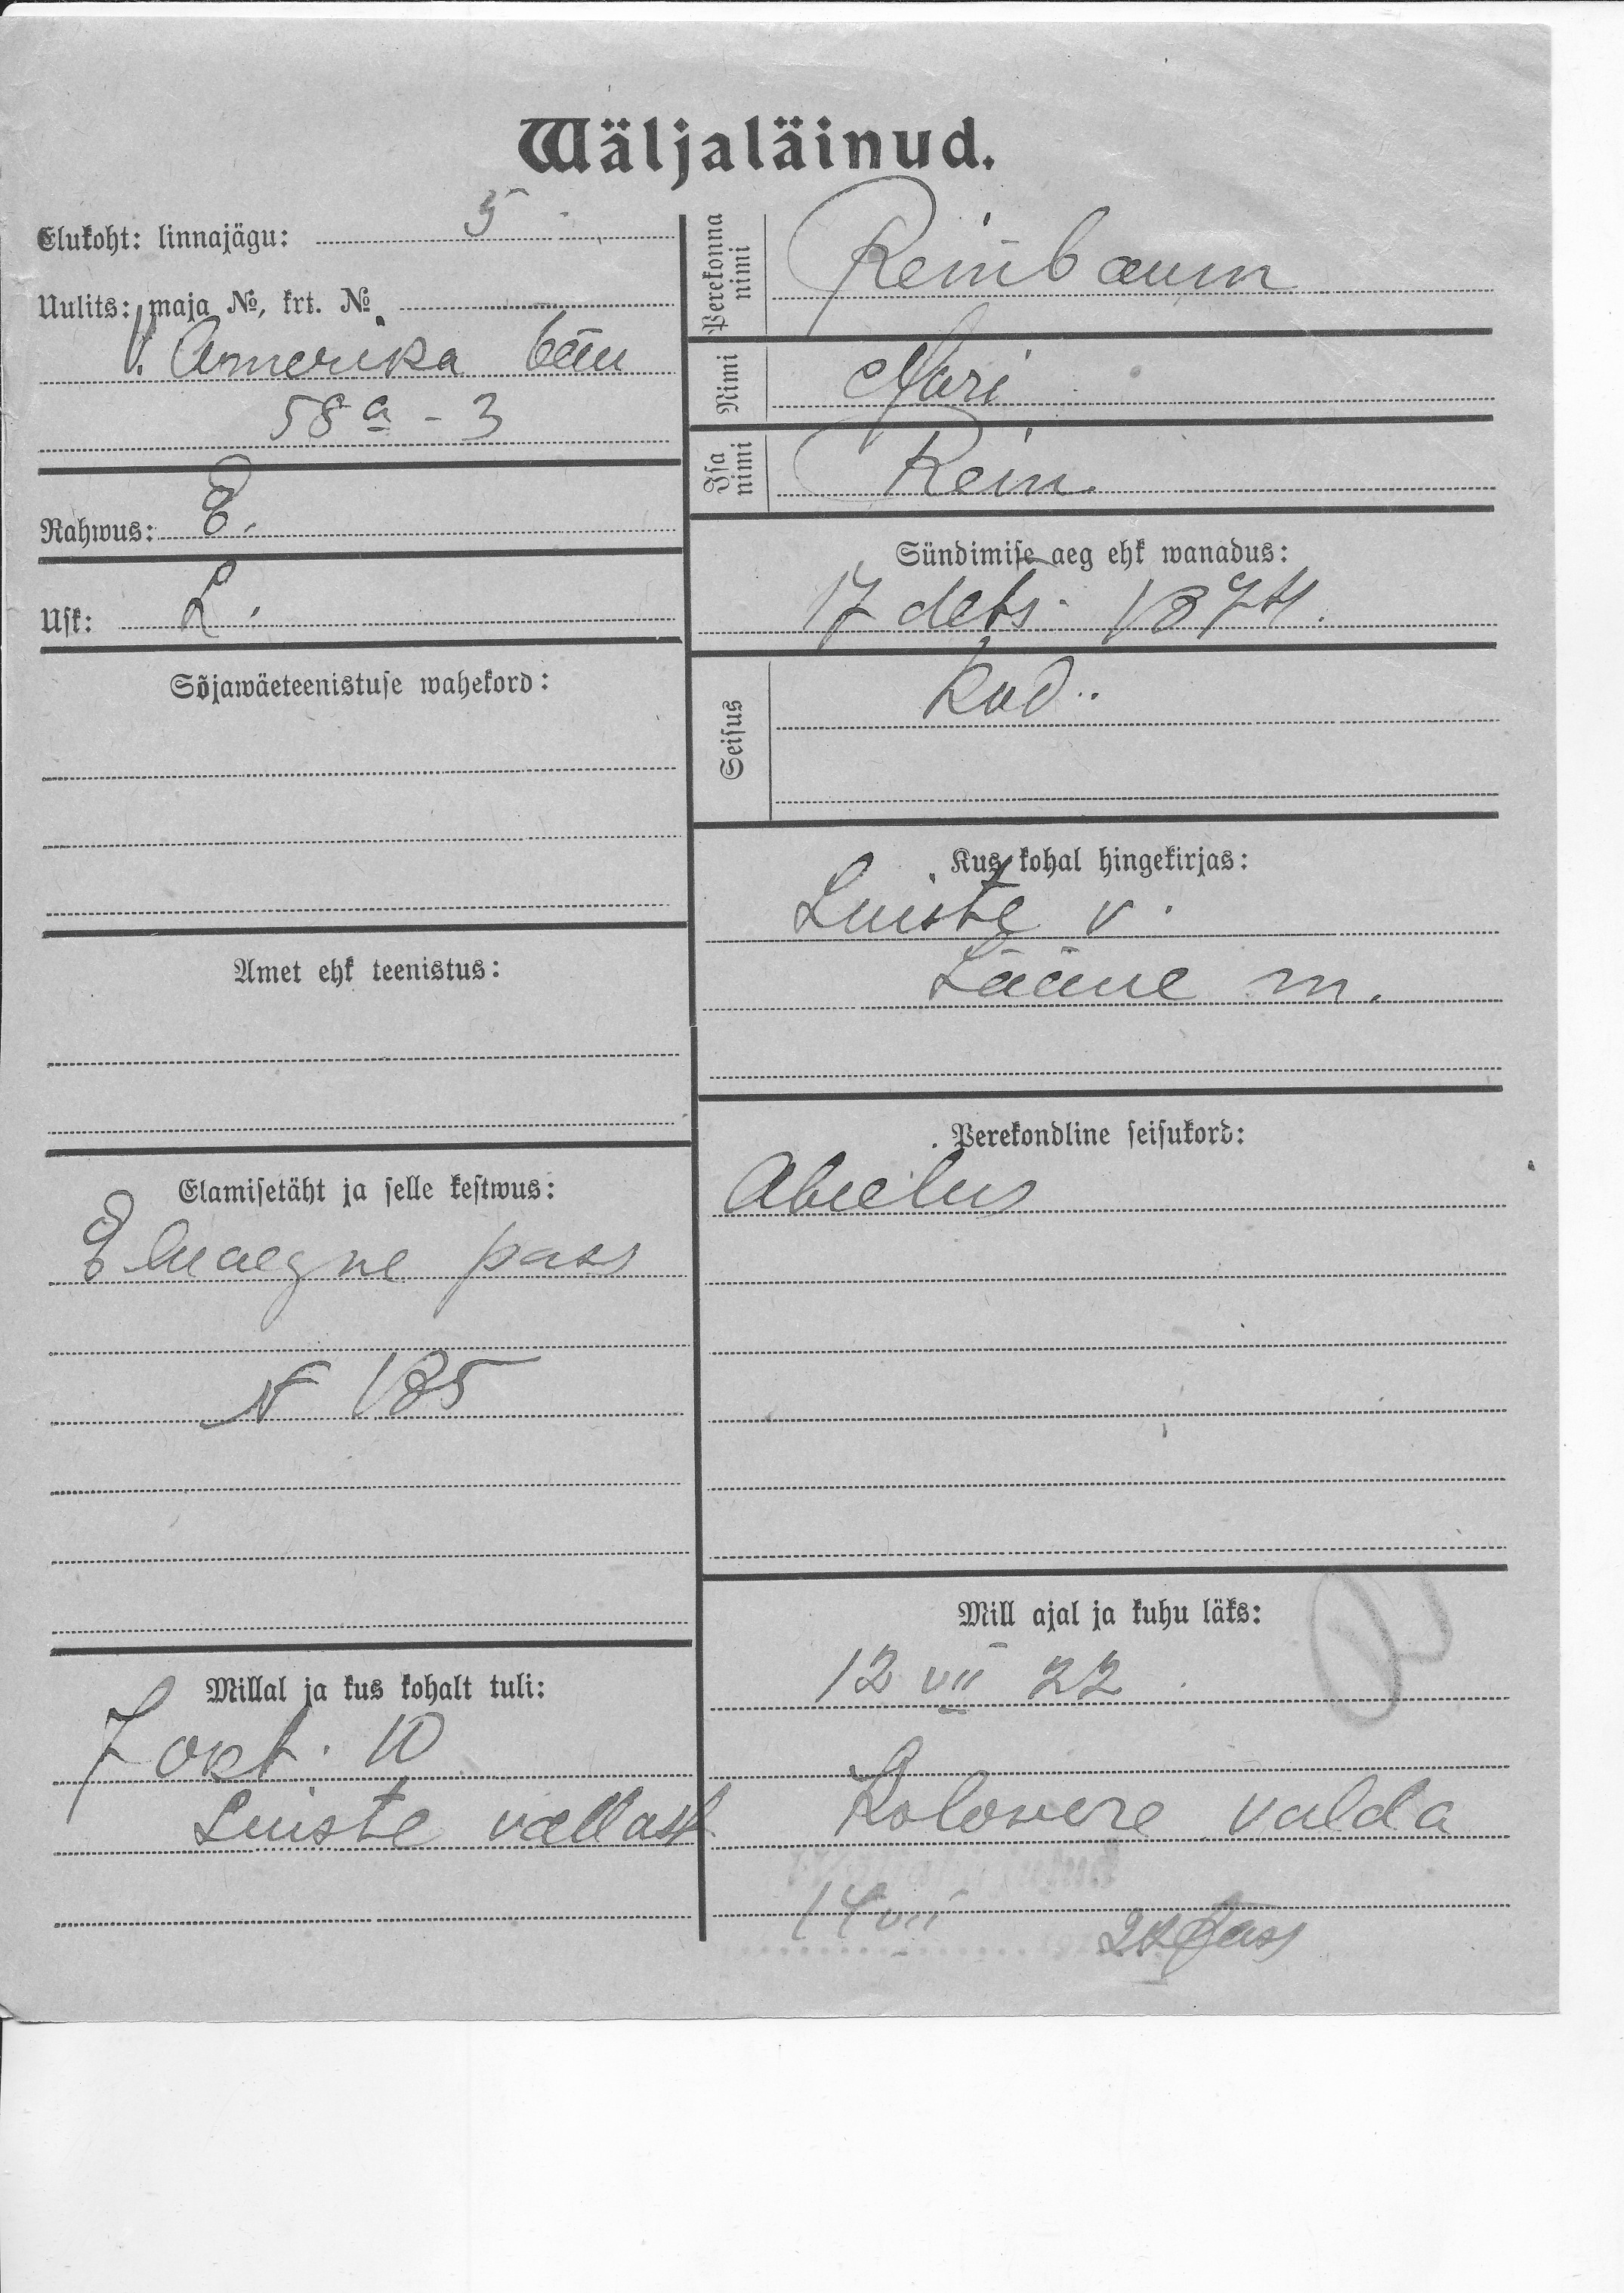 Wäljaläinud.
Elukoht: linnajägu: 5
Uulits: maja №, krt. №
V. Amerika tän
58 a - 3
Rahwus: E.
Usk: L.
Sõjawäeteenistuse wahekord:
Amet ehk teenistus:
Elamisetäht ja selle kestwus:
Eluaegne pass
N 185
Millal ja kus kohalt tuli:
7 okt. 10
Luiste vallast
Perekonna nimi
Reinbaum
Nimi
Mari
Isa nimi
Rein.
Sündimise aeg ehk wanadus:
17 dets. 1874.
Seisus
Kod.
Kus kohal hingekirjas:
Luiste v.
Lääne m.
Perekondline seisukord:
Abielus
Mill ajal ja kuhu läks:
12 VII 22.
Kolovere valda
14 VII